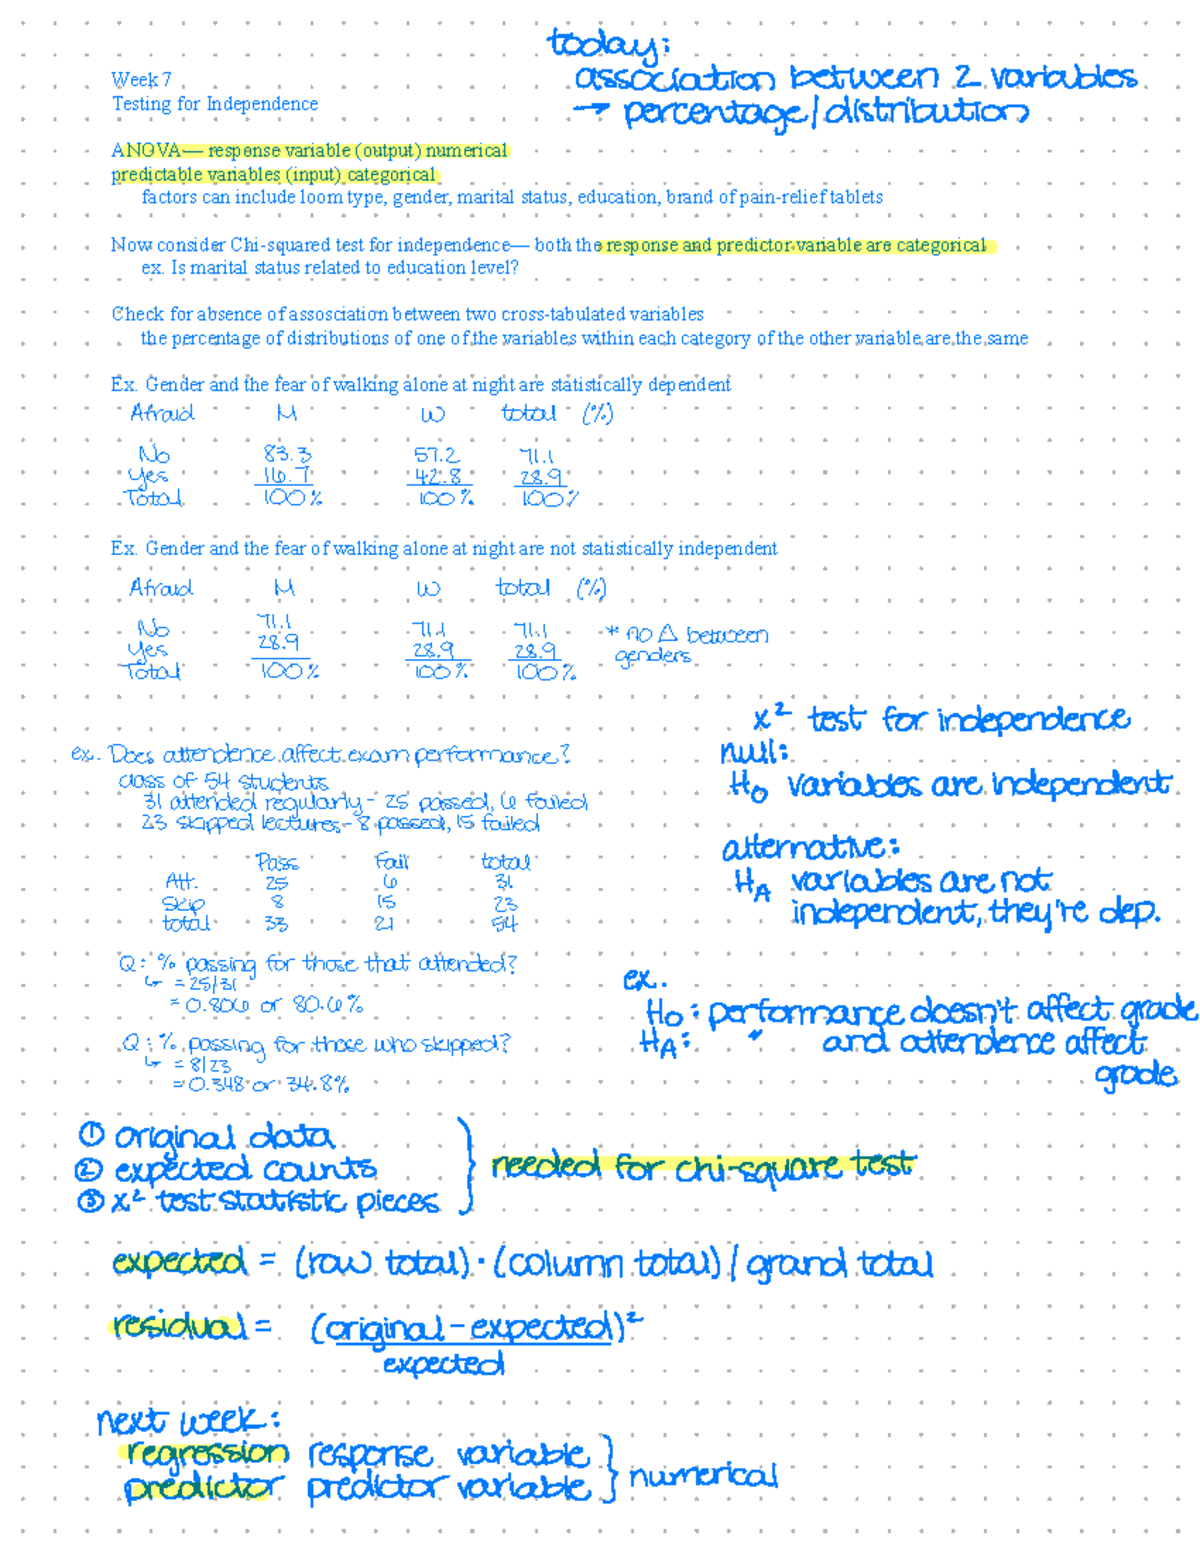 today:
association between 2 variables
→ percentage/distribution
Week 7
Testing for Independence
ANOVA— response variable (output) numerical
predictable variables (input) categorical
factors can include loom type, gender, marital status, education, brand of pain-relief tablets
Now consider Chi-squared test for independence— both the response and predictor variable are categorical
ex. Is marital status related to education level?
Check for absence of assosciation between two cross-tabulated variables
the percentage of distributions of one of the variables within each category of the other variable are the same
Ex. Gender and the fear of walking alone at night are statistically dependent
Afraid M W total (%)
No 83.3 57.2 71.1
Yes 16.7 42.8 28.9
Total 100% 100% 100%
Ex. Gender and the fear of walking alone at night are not statistically independent
Afraid M W total (%)
No 71.1 71.1 71.1 * no Δ between
Yes 28.9 28.9 28.9 genders
Total 100% 100% 100%
x² test for independence
null:
H₀ variables are independent
alternative:
H_A variables are not
independent, they're dep.
ex. Does attendence affect exam performance?
class of 54 students
31 attended regularly - 25 passed, 6 failed
23 skipped lectures - 8 passed, 15 failed
Pass Fail total
Att. 25 6 31
Skip 8 15 23
total 33 21 54
Q: % passing for those that attended?
↳ = 25/31
= 0.806 or 80.6%
Q: % passing for those who skipped?
↳ = 8/23
= 0.348 or 34.8%
ex.
H₀: performance doesn't affect grade
H_A: " and attendence affect
grade
① original data
② expected counts
③ x² test statistic pieces
needed for chi-square test
expected = (row total) · (column total) / grand total
residual = (original - expected)²
expected
next week:
regression response variable
predictor predictor variable
numerical